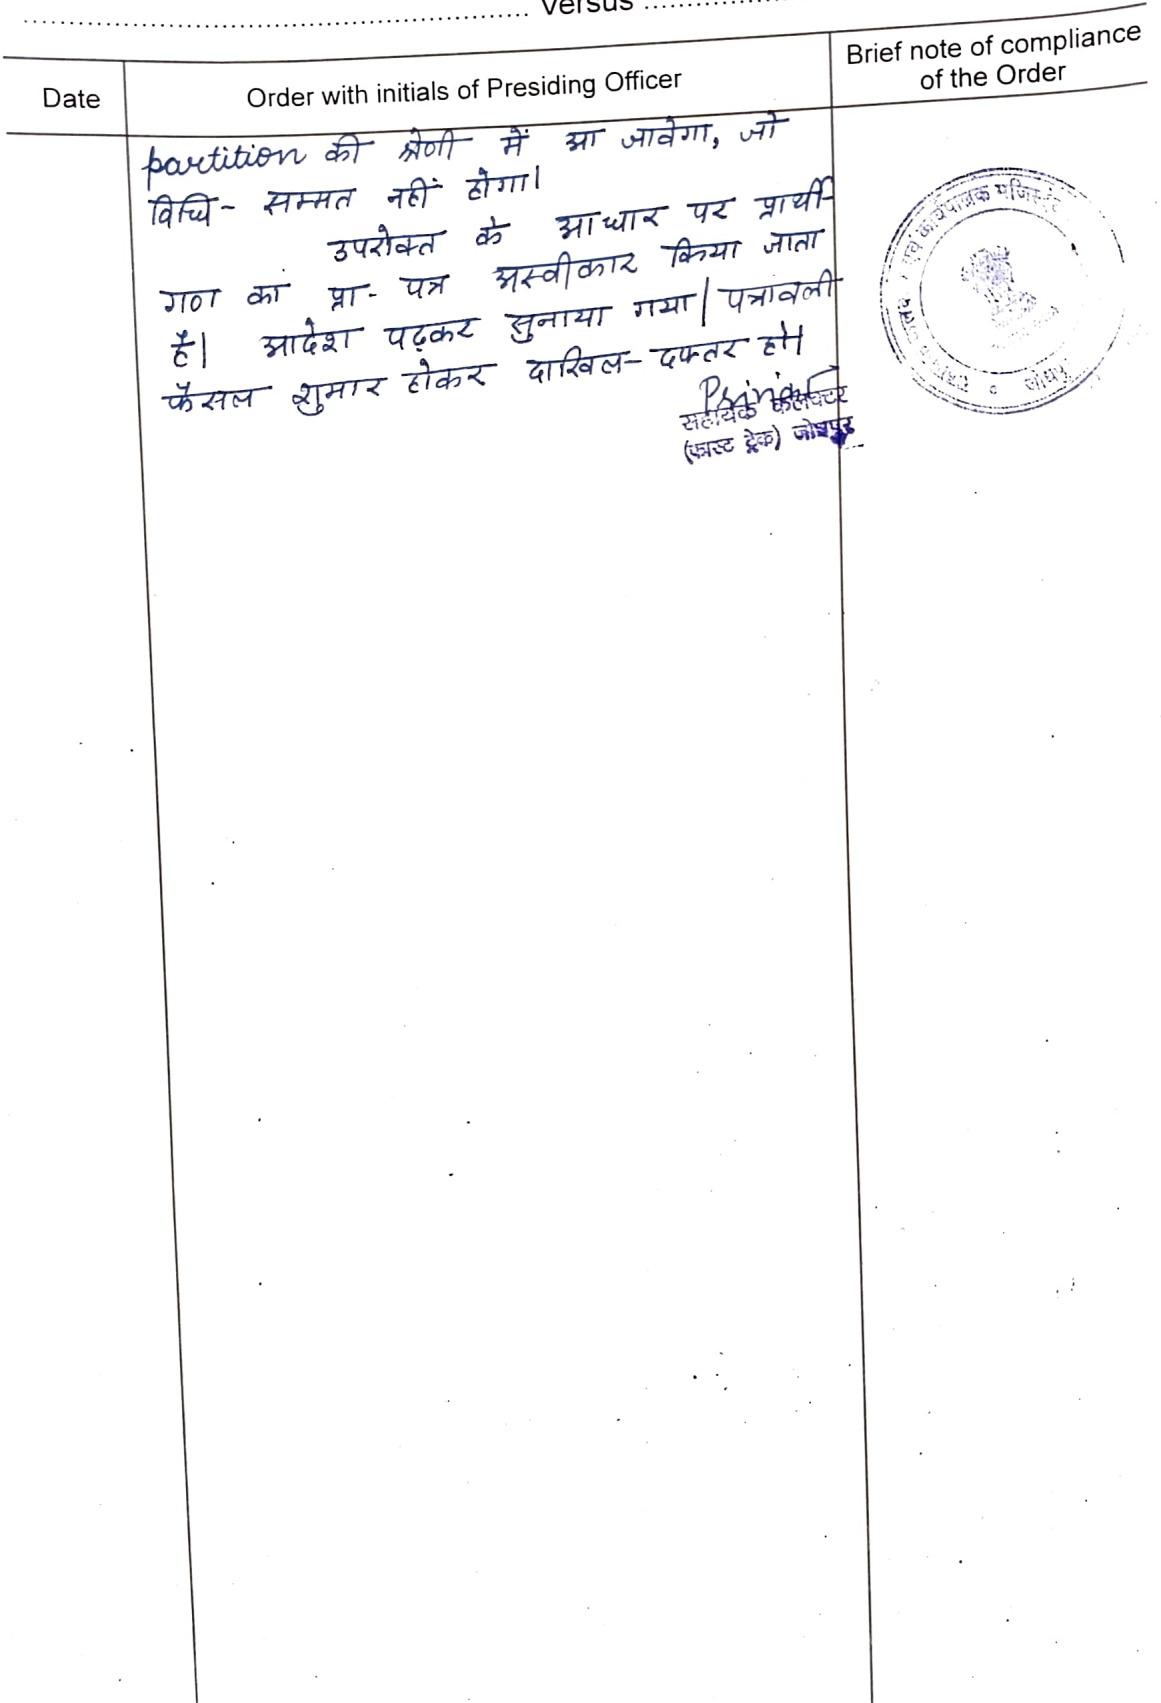 ........................................................ Versus ................
Date
Order with initials of Presiding Officer
Brief note of compliance
of the Order
partition की श्रेणी में आ जावेगा, जो
विधि- सम्मत नहीं होगा।
उपरोक्त के आधार पर प्रार्थी-
गण का प्रा- पत्र अस्वीकार किया जाता
है। आदेश पढ़कर सुनाया गया। पत्रावली
फैसल शुमार होकर दाखिल- दफ्तर हो।
सहायक कलक्टर
(फास्ट ट्रेक) जोधपुर
एवं कार्यपालक मजिस्ट्रेट